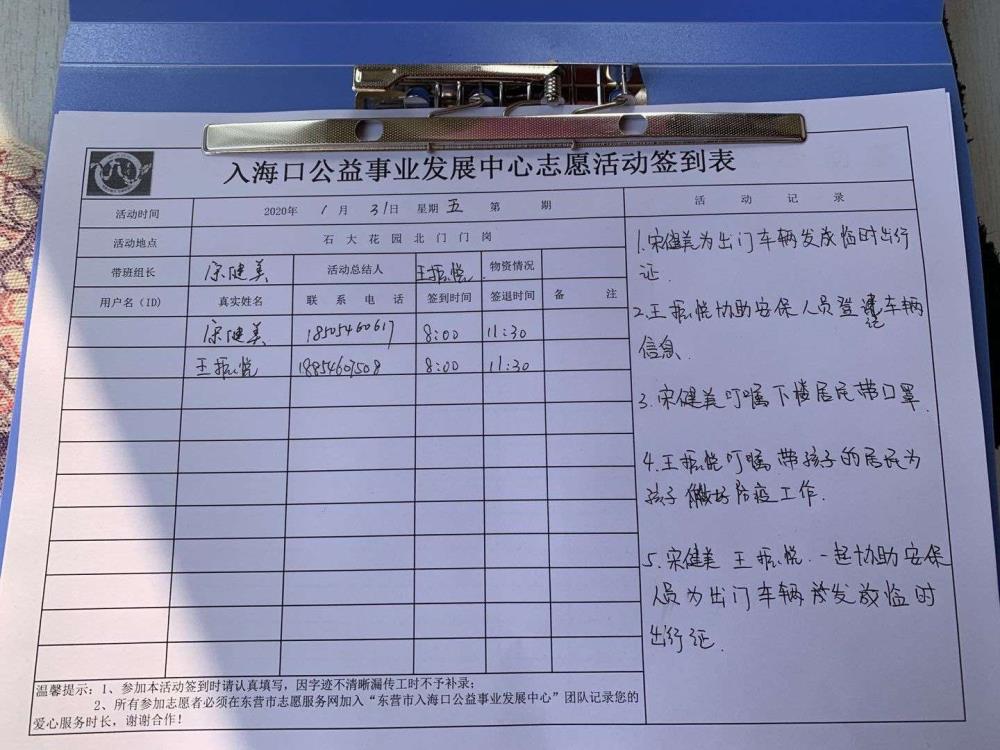 入海口公益事业发展中心志愿活动签到表
活动时间 2020年 1 月 31日 星期 五 第 期
活动地点 石大花园北门门岗
带班组长 宋健美 活动总结人 王振悦 物资情况
用户名（ID） 真实姓名 联系电话 签到时间 签退时间 备注
宋健美 18505460617 8:00 11:30
王振悦 18854607508 8:00 11:30
活动记录
1.宋健美为出门车辆发放临时出行
证.
2.王振悦协助安保人员登记车辆
信息.
3.宋健美叮嘱下楼居民带口罩.
4.王振悦叮嘱带孩子的居民为
孩子做好防疫工作.
5.宋健美 王振悦.一起协助安保
人员为出门车辆发放临时
出行证.
温馨提示：1、参加本活动签到时请认真填写，因字迹不清晰漏传工时不予补录；
2、所有参加志愿者必须在东营市志愿服务网加入“东营市入海口公益事业发展中心”团队记录您的
爱心服务时长，谢谢合作！